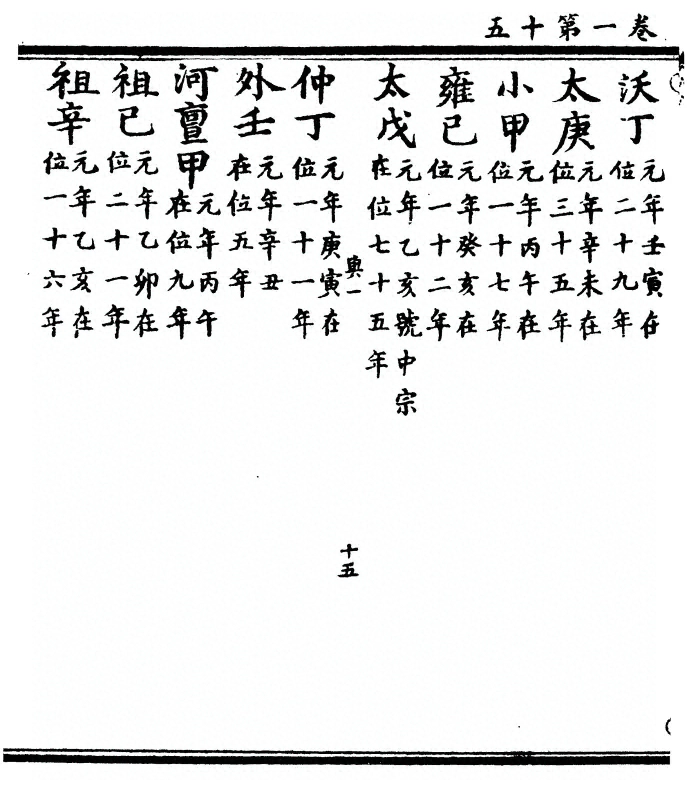 卷一第十五
沃丁
元年壬寅在
位二十九年
太庚
元年辛未在
位三十五年
小甲
元年丙午在
位一十七年
雍己
元年癸亥在
位一十二年
太戊
元年乙亥號中宗
在位七十五年
輿一
十五
仲丁
元年庚寅在
位一十一年
外壬
元年辛丑
在位五年
河亶甲
元年丙午
在位九年
祖己
元年乙卯在
位二十一年
祖辛
元年乙亥在
位一十六年